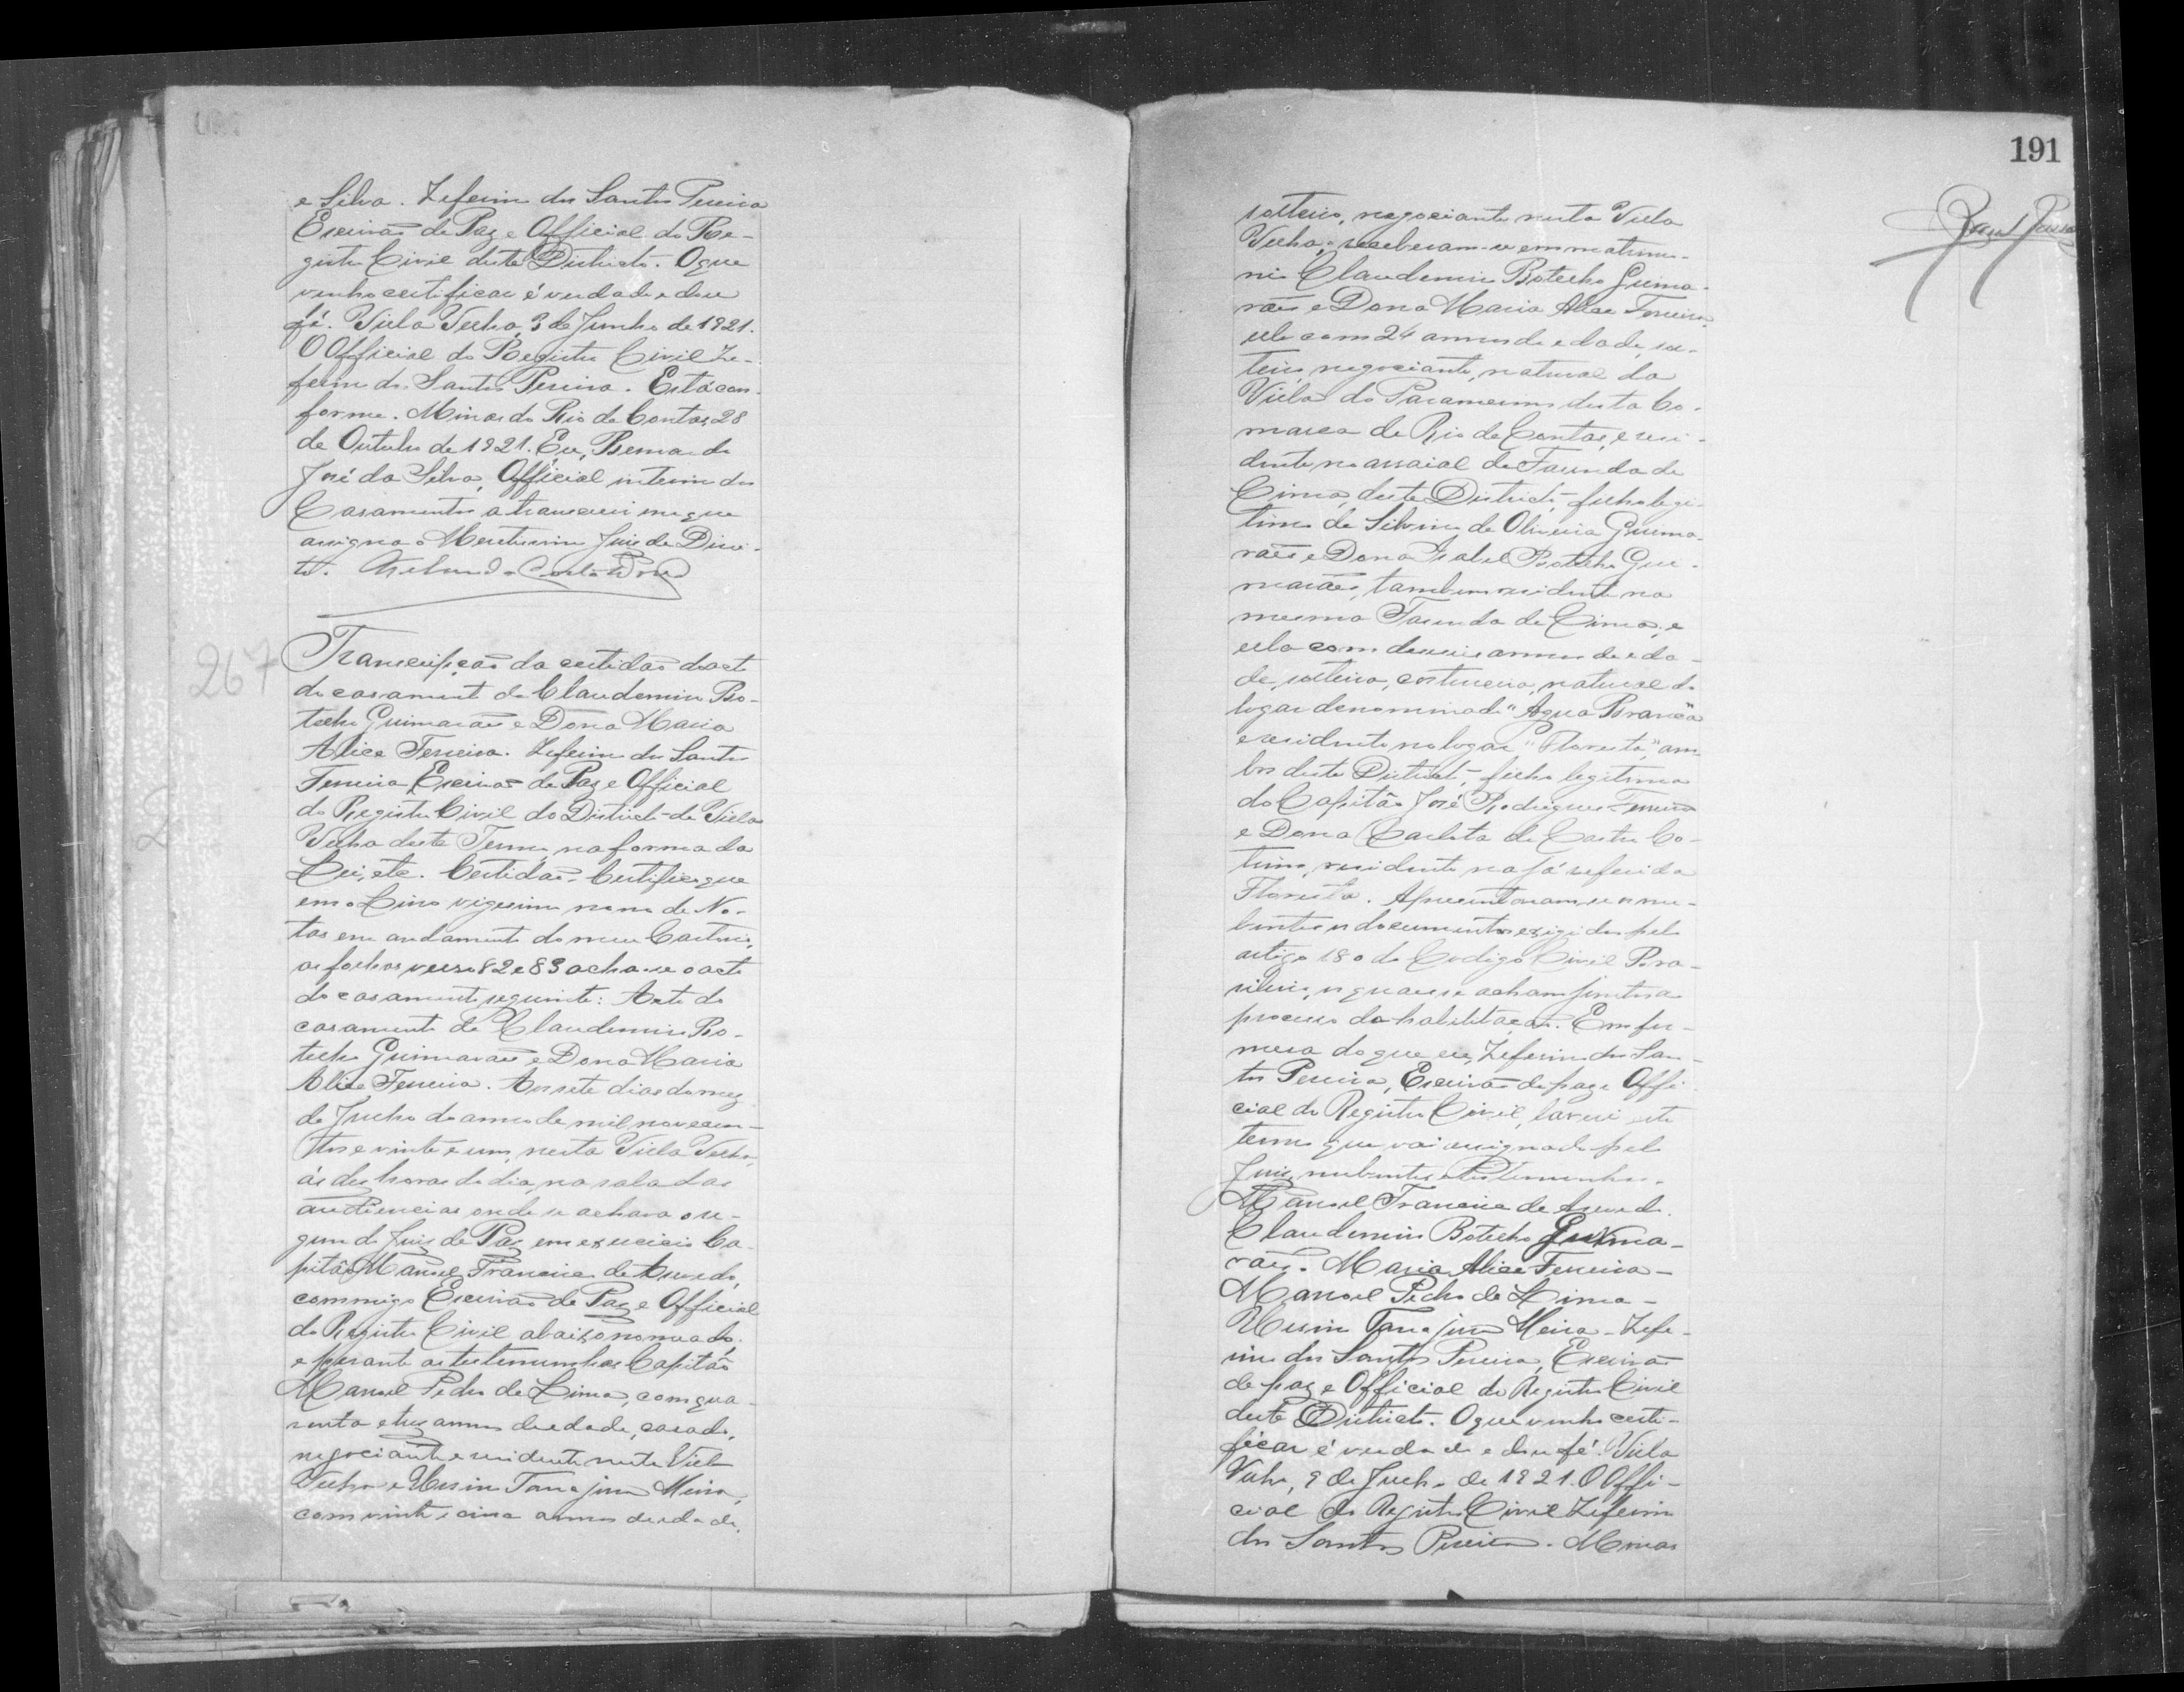 e Silva. Zeferino dos Santos Pereira
Escrivão de Paz e Official do Re-
gistro Civil deste Districto. O que
venho certificar é verdade e dou
fé. Villa Velha, 3 de Junho de 1921.
O Official do Registro Civil Ze-
ferino dos Santos Pereira. Está con-
forme. Minas do Rio de Contas, 28
de Outubro de 1921. Eu, Bernardo
José da Silva, Official interino dos
Casamentos a transcrevi em que
assigna o Meretissimo Juiz de Direi-
to.
267
Transcripção da certidão do acto
do casamento de Claudemiro Bo-
telho Guimarães e Dona Maria
Alice Ferreira. Zeferino dos Santos
Pereira Escrivão de Paz e Official
do Registro Civil do Districto de Villa
Velha deste Termo, na forma da
Lei, etc. Certidão. Certifico que
em o Livro vigesimo nono de No-
tas em andamento do meu Cartorio,
as folhas verso 82 e 83 acha-se o acto
do casamento seguinte: Acto do
casamento de Claudemiro Bo-
telho Guimarães e Dona Maria
Alice Ferreira. Aos sete dias do mez
de Julho do anno de mil novecen-
tos e vinte e um, nesta Villa Velha,
ás dez horas do dia, na sala das
audiencias onde se achava o se-
gundo Juiz de Paz em exercicio Ca-
pitão Manoel Francisco de Azevedo,
commigo Escrivão de Paz e Official
do Registro Civil abaixo nomeado,
e perante as testemunhas Capitão
Manoel Pedro de Lima, com qua-
renta e tres annos de edade, casado,
negociante e residente nesta Villa
Velha e Tanajura Meira,
com vinte e cinco annos de edade,
191
solteiro, negociante nesta Villa
Velha; receberam-se em matrimo-
nio Claudemiro Botelho Guima-
rães e Dona Maria Alice Ferreira,
elle com 24 annos de edade, sol-
teiro, negociante, natural da
Villa do Paramerim desta Co-
marca de Rio de Contas, e resi-
dente no arraial de Fazenda de
Cima, deste Districto, filho legi-
timo de Silvino de Oliveira Guima-
rães e Dona Isabel Botelho Gui-
marães, tambem residente na
mesma Fazenda de Cima; e
ella com deseseis annos de eda-
de, solteira, costureira, natural do
logar denominado "Agua Branca"
e residente no logar "Floresta", am-
bos deste Districto, filha legitima
do Capitão José Rodrigues Ferreira
e Dona Carlota de Castro Co-
trim, residente na já referida
Floresta. Apresentaram-se os nu-
bentes os documentos exigidos pelo
artigo 180 do Codigo Civil Bra-
sileiro, os quaes se acham juntos ao
processo da habilitação. Em fir-
mesa do que eu, Zeferino dos San-
tos Pereira, Escrivão de paz e Offi-
cial do Registro Civil, lavrei este
termo que vai assignado pelo
Juiz, nubentes e testemunhas.
Manoel Francisco de Azevedo.
Claudemiro Botelho Guima-
rães. Maria Alice Ferreira -
Manoel Pedro de Lima -
Tanajura Meira - Zefe-
rino dos Santos Pereira, Escrivão
de paz e Official do Registro Civil
deste Districto. O que venho certi-
ficar é verdade e dou fé. Villa
Velha, 9 de Julho de 1921. O Offi-
cial do Registro Civil Zeferino
dos Santos Pereira. Minas